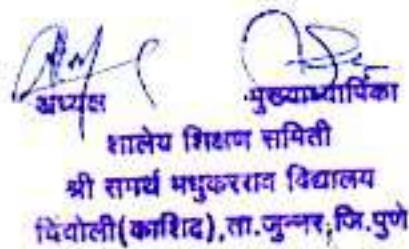 अध्यक्ष मुख्याध्यापिका
शालेय शिक्षण समिती
श्री समर्थ मधुकरराव विद्यालय
(काशिद),ता.जुन्नर,जि.पुणे